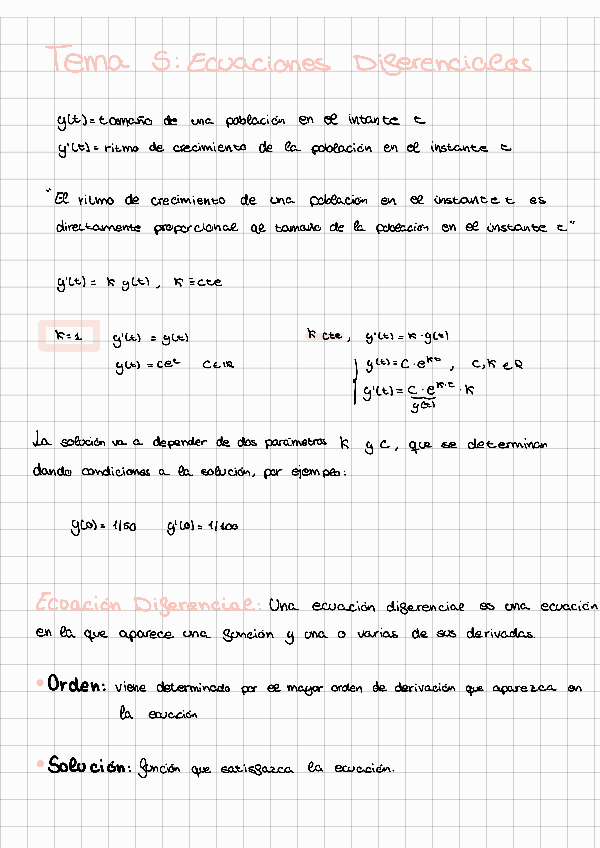 Tema 5: Ecuaciones Diferenciales
y(t) = tamaño de una población en el intante t
y'(t) = ritmo de crecimiento de la población en el instante t
"El ritmo de crecimiento de una población en el instante t es
directamente proporcional al tamaño de la población en el instante t"
y'(t) = k y(t), k ≡ cte
k=1 y'(t) = y(t) k cte, y'(t) = k · y(t)
y(t) = ce^t C∈ℝ y(t) = C · e^{kt}, C, k ∈ ℝ
y'(t) = C · e^{k·t} · k
y(t)
La solución va a depender de dos parámetros k y c, que se determinan
dando condiciones a la solución, por ejemplo:
y(0) = 1/50 y'(0) = 1/100
Ecuación Diferencial: Una ecuación diferencial es una ecuación
en la que aparece una función y una o varias de sus derivadas.
• Orden: viene determinado por el mayor orden de derivación que aparezca en
la ecucción
• Solución: función que satisfazca la ecucción.